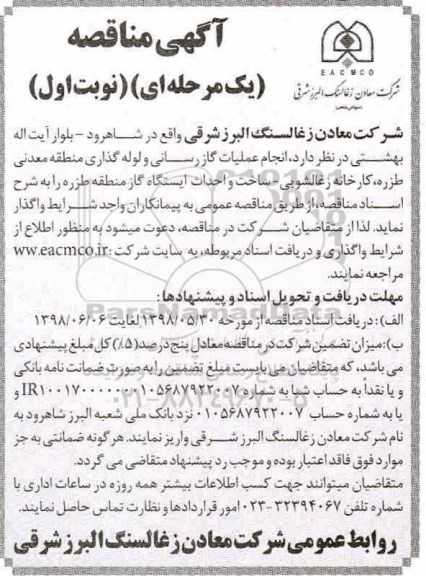 آگهی مناقصه
(یک مرحله ای) (نوبت اول)
EACMCO
شرکت معادن زغالسنگ البرز شرقی
شرکت معادن زغالسنگ البرز شرقی واقع در شاهرود - بلوار آیت اله
بهشتی در نظر دارد، انجام عملیات گاز رسانی و لوله گذاری منطقه معدنی
طزره، کارخانه زغالشویی - ساخت و احداث ایستگاه گاز منطقه طزره را به شرح
اسناد مناقصه، از طریق مناقصه عمومی به پیمانکاران واجد شرایط واگذار
نماید. لذا از متقاضیان شرکت در مناقصه، دعوت میشود به منظور اطلاع از
شرایط واگذاری و دریافت اسناد مربوطه، به سایت شرکت: ww.eacmco.ir
مراجعه نمایند.
مهلت دریافت و تحویل اسناد و پیشنهادها:
الف): دریافت اسناد مناقصه از مورخه ۱۳۹۸/۰۵/۳۰ لغایت ۱۳۹۸/۰۶/۰۶
ب): میزان تضمین شرکت در مناقصه معادل پنج درصد (۵٪) کل مبلغ پیشنهادی
می باشد، که متقاضیان می بایست مبلغ تضمین را به صورت ضمانت نامه بانکی
و یا نقداً به حساب شبا به شماره و
یا به شماره حساب ۰۱۰۵۶۸۷۹۲۲۰۰۷ نزد بانک ملی شعبه البرز شاهرود به
نام شرکت معادن زغالسنگ البرز شرقی واریز نمایند. هر گونه ضمانتی به جز
موارد فوق فاقد اعتبار بوده و موجب رد پیشنهاد متقاضی می گردد.
متقاضیان میتوانند جهت کسب اطلاعات بیشتر همه روزه در ساعات اداری با
شماره تلفن ۳۲۳۹۴۰۶۷-۰۲۳ امور قراردادها و نظارت تماس حاصل نمایند.
روابط عمومی شرکت معادن زغالسنگ البرز شرقی
ParsNamadData